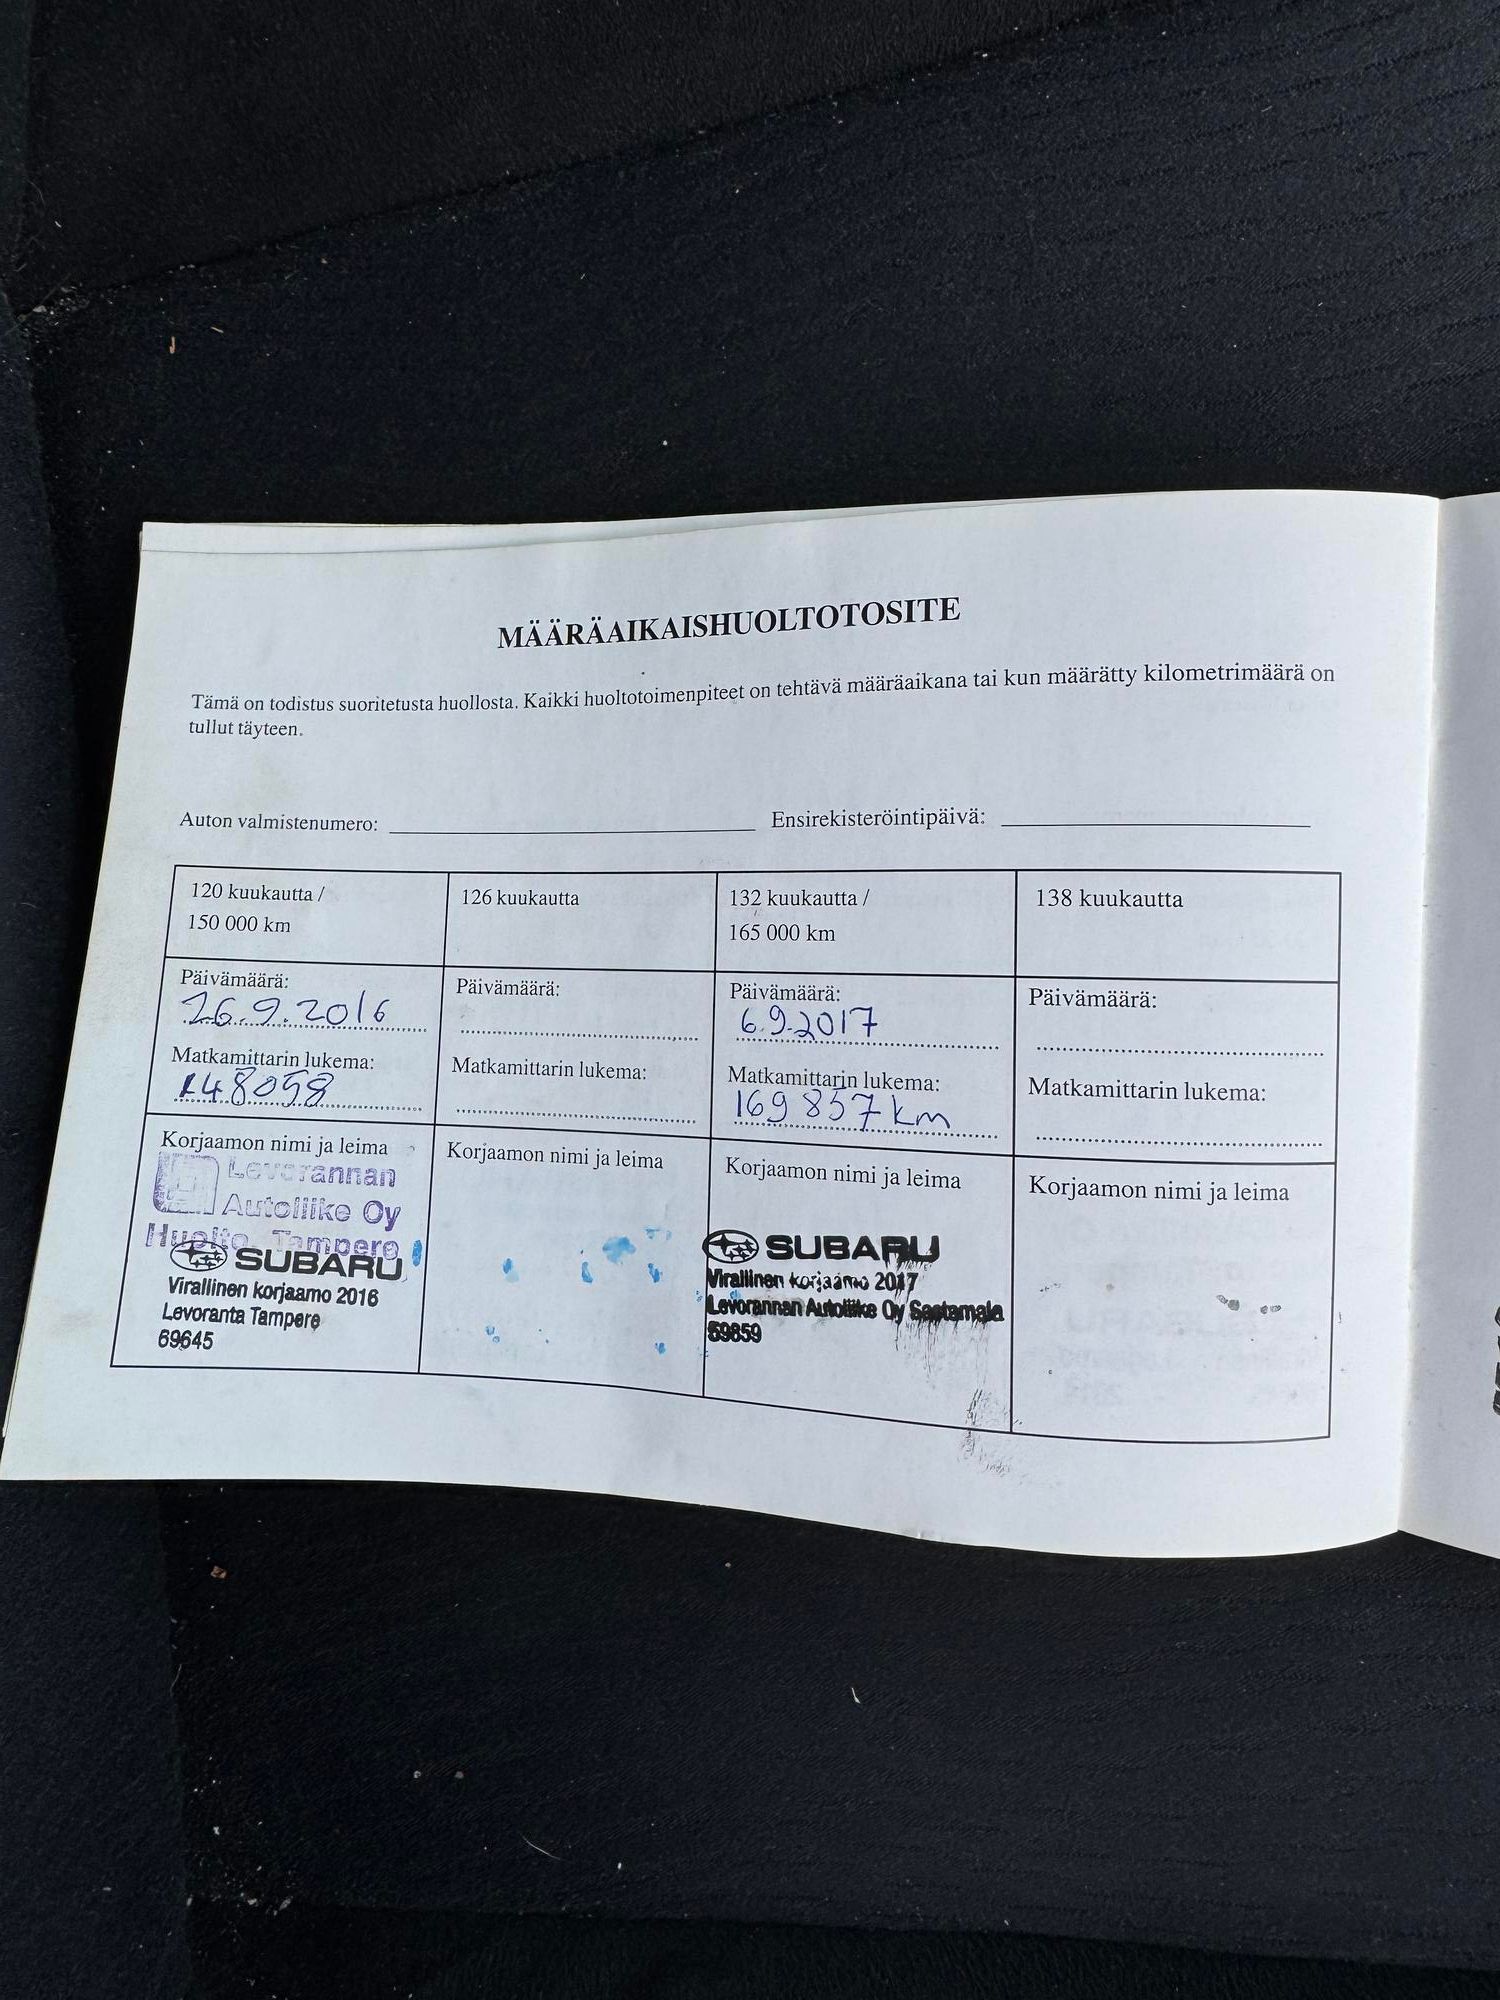 MÄÄRÄAIKAISHUOLTOTOSITE
Tämä on todistus suoritetusta huollosta. Kaikki huoltotoimenpiteet on tehtävä määräaikana tai kun määrätty kilometrimäärä on
tullut täyteen.
Auton valmistenumero:
Ensirekisteröintipäivä:
120 kuukautta /
150 000 km
Päivämäärä:
26.9.2016
Matkamittarin lukema:
148058
Korjaamon nimi ja leima
Levorannan
Autoliike Oy
Huolto, Tampere
SUBARU
Virallinen korjaamo 2016
Levoranta Tampere
69645
126 kuukautta
Päivämäärä:
Matkamittarin lukema:
Korjaamon nimi ja leima
132 kuukautta /
165 000 km
Päivämäärä:
6.9.2017
Matkamittarin lukema:
169 857 km
Korjaamon nimi ja leima
SUBARU
Virallinen korjaamo 2017
Levorannan Autoliike Oy Sastamala
59859
138 kuukautta
Päivämäärä:
Matkamittarin lukema:
Korjaamon nimi ja leima